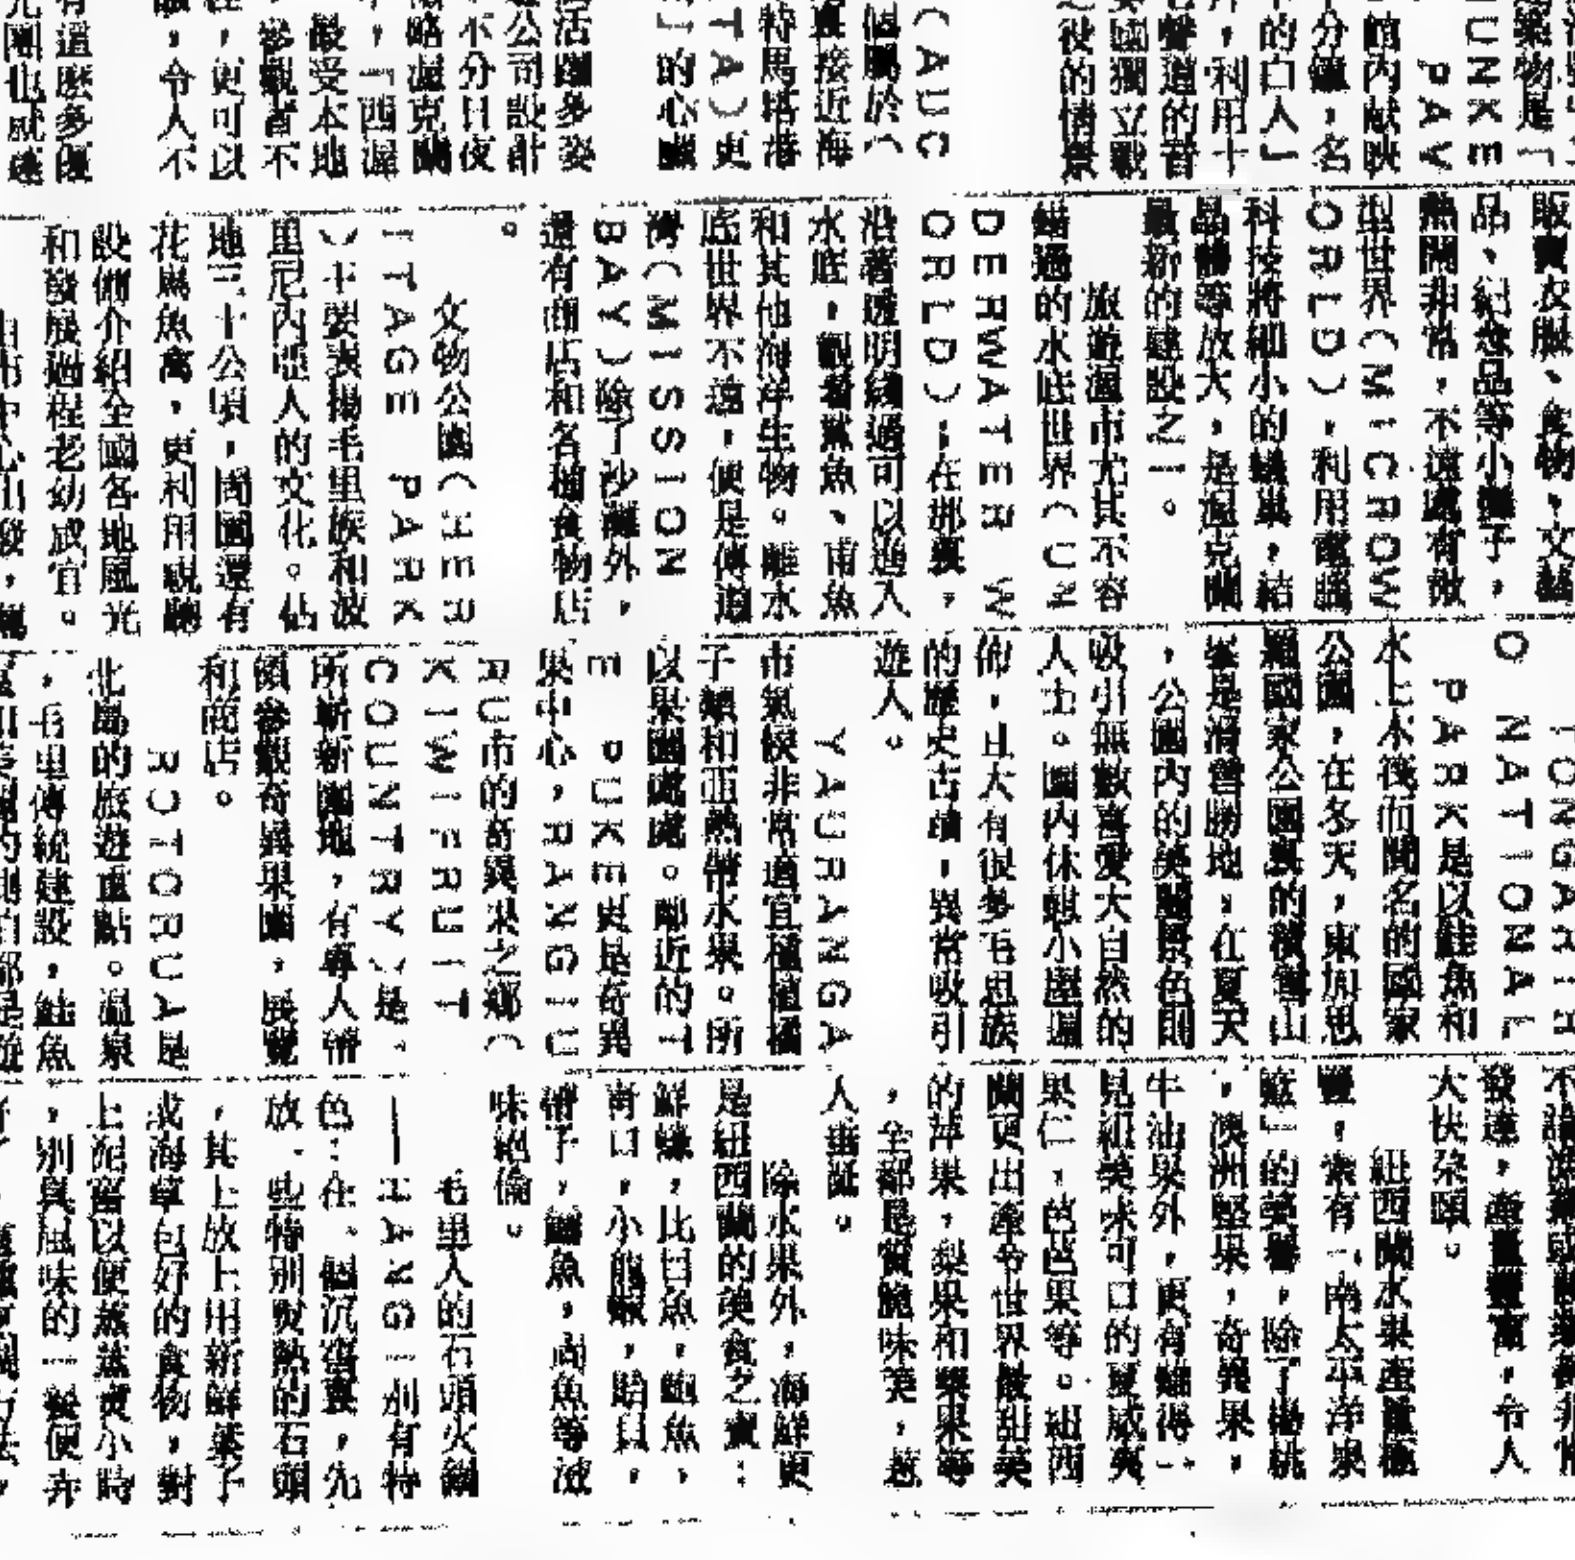 築物是「
UNKE
PAV
館內献映
十分鐘,名
的白人」
,利用十
聲道的音
國獨立戰
役的情景
(AUC
個屬於(
直接近海
特馬塔港
TA)更
」的心臟
活躍多姿
公司設計
不分日夜
略渥克蘭
,「西渥
最受本地
參觀者不
,更可以
,令人不
有這麼多優
販賣衣服、食物,文藝
品、紀念品等小攤子,
熱鬧非常,不遠處有微
型世界(MICROW
ORLD),利用電腦
科技將細小的蟻巢,結
晶體等放大,是渥克蘭
最新的建設之一。
旅遊渥市尤其不容
錯過的水底世界(UN
DERWATER W
ORLD),在那裏,
沿著透明綫過可以進入
水底,觀看鯊魚,甫魚
和其他海洋生物。離水
底世界不遠,便是傳道
灣(MISSION
BAY)除了沙灘外,
還有商店和各種食物店
。
文物公園(HER
ITAGE PARK
)主要表揚毛里族和波
里尼西亞人的文化。佔
地三十公頃,園園還有
花鳥魚蟲,更利用視聽
設備介紹全國各地風光
和發展過程老幼咸宜。
由市中心出發,
TONGARIR
O NATIONAL
PARK是以鮭魚和
水上木筏而聞名的國家
公園,在冬天,東加思
羅國家公園裏的積雪山
峯是滑雪勝地,在夏天
,公園內的美麗景色則
吸引無數喜愛大自然的
人士。園內休憩小屋遍
佈,且大有很多毛思族
的歷史古蹟,異常吸引
遊人。
YAURANGA
市氣候非常適宜種植橘
子類和亞熱帶水果。所
以果園處處。鄰近的T
E PUKE更是奇異
果中心,RANGIU
RU市的奇異果之鄉(
KIWIFRUIT
COUNTRY)是
所嶄新園地,有專人帶
領參觀奇異果園,展覽
和商店。
ROTORUA是
北島的旅遊重點。溫泉
,毛里傳統建設,鮭魚
發達,產量豐富,令人
大快朶頤。
紐西蘭水果產量極
豐,素有「南太平洋果
籃」的美譽,除了楊桃
,澳洲堅果,奇異果,
牛油果外,更有難得一
見紐美味可口的夏威夷
果仁,芭芭果等。紐西
蘭更出產令世界最甜美
的苹果,梨果和櫻果等
,全部是質脆味美,惹
人垂涎。
除水果外,海鮮更
是紐西蘭的美食之寶:
鮮蠔,比目魚,鮑魚,
青口,小龍蝦,貽貝,
帶子,鯛魚,尚魚等滋
味絕倫。
毛里人的石頭火鍋
——HANGI別有特
色:在一個沉窩裏,先
放一些特別煲熱的石頭
,其上放上用新鮮葉子
或海草包好的食物,對
上泥窩以便蒸蒸煲小時
,別具風味的一餐便弃